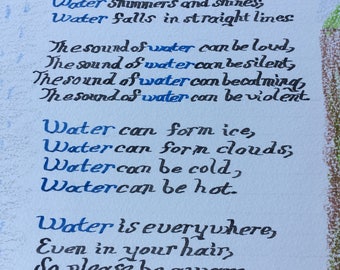 Water shimmers and shines,
Water falls in straight lines.
The sound of water can be loud,
The sound of water can be silent,
The sound of water can be calming,
The sound of water can be violent.
Water can form ice,
Water can form clouds,
Water can be cold,
Water can be hot.
Water is everywhere,
Even in your hair,
So please be aware